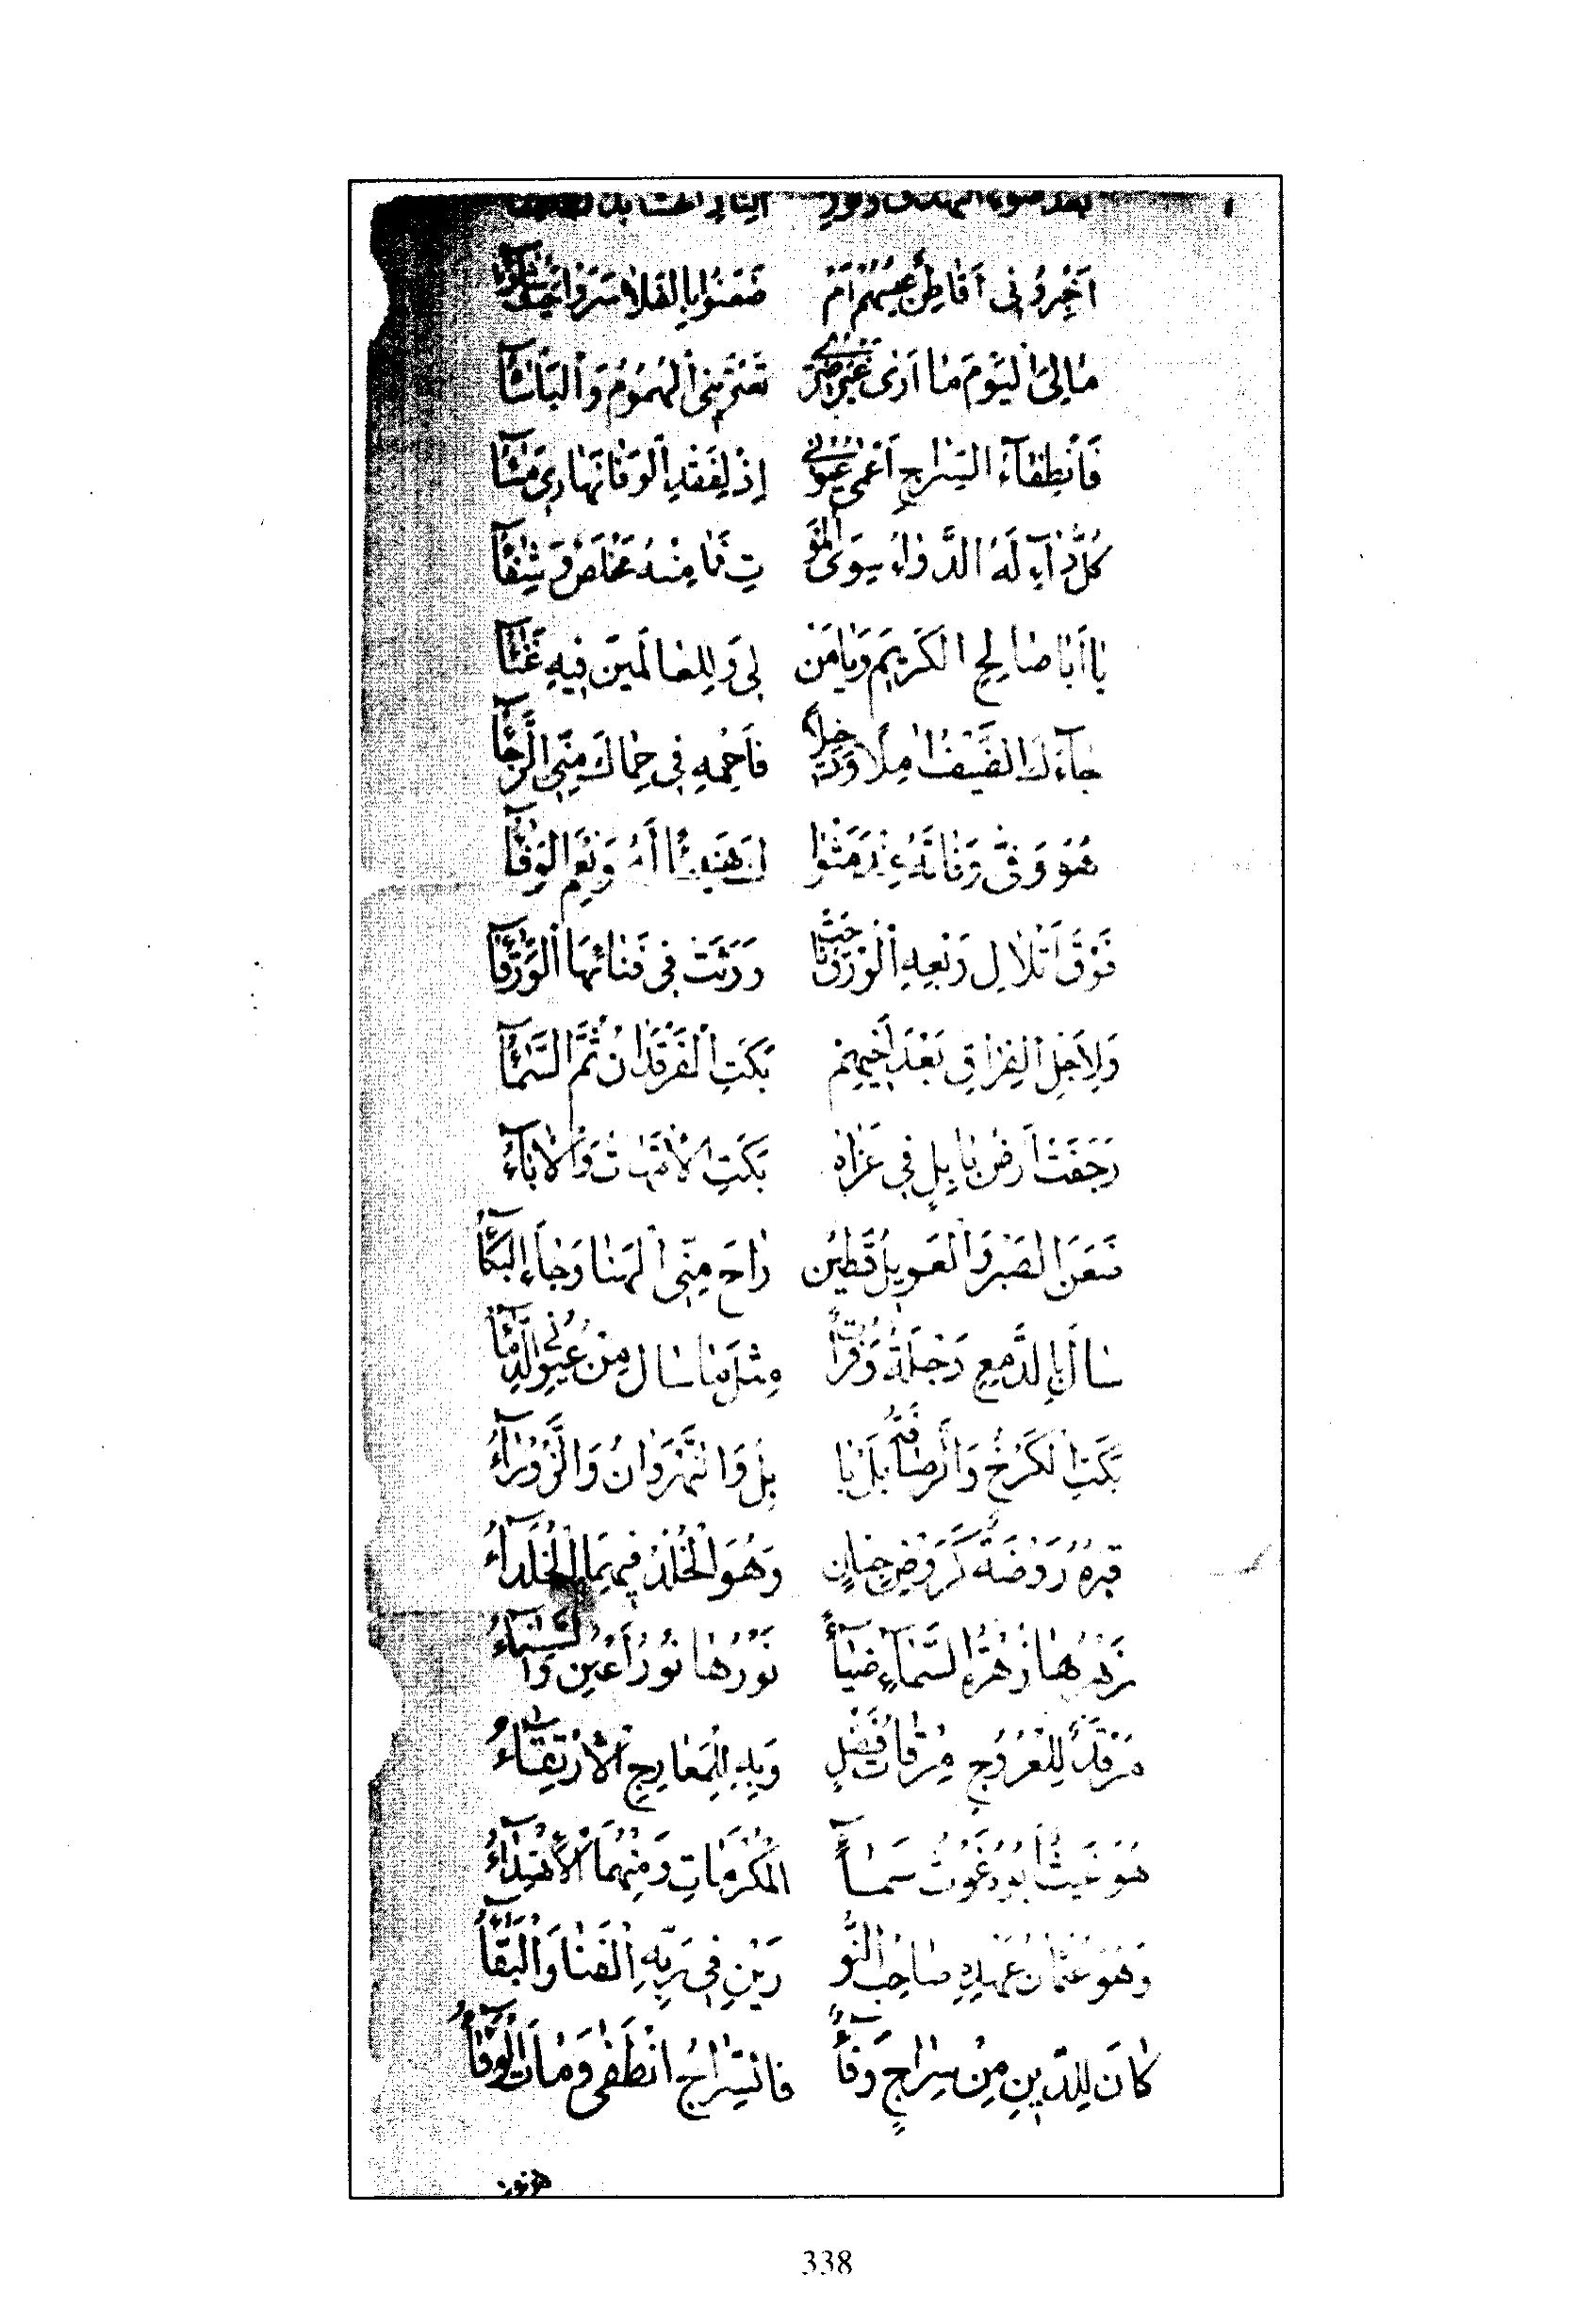 اَخْبِرُونِي اَقَاطِنٌ عِيسُهُمْ اَمْ ضَعَنُوا بِالفَلَا سَرَوْا
مَا لِيَ الْيَوْمَ مَا اَرَىٰ غَيْرَ ضُرّي تَعْتَرِينِي الْهُمُومُ وَالْبَأْسَآءُ
فَانْطِفَآءُ السِّرَاجِ اَعْمَىٰ عُيُوني اِذْ لِفَقْدِ الْوَفَا نَهَارِي مَسَآءُ
كُلُّ دَآءٍ لَهُ الدَّوَاءُ سِوَى الْمَوْ تِ فَمَا مِنْهُ مَخْلَصٌ وَشِفَآءُ
يَا اَبَا صَالِحِ الكَرِيمَ وَيَا مَنْ لِي وَلِلعَالَمِينَ فِيهِ غَنَآءُ
جَآءَكَ الضَّيْفُ فَاَحْمِهِ فِي حِمَاكَ مِنِّي الرَّجَآءُ
هُوَ وَفَّى وَفَاتَهُ عِنْدَ مَثْوَا كَ هَنِيئًا لَهُ وَنِعْمَ الوَفَآءُ
فَوْقَ اَتْلَالِ رَبْعِهِ الْوُرْقُ نَاحَتْ وَرَثَتْ فِي فَنَائِهَا الْوَرْقَآءُ
وَلِاَجْلِ الفِرَاقِ بَعْدَ اَخِيهِمْ بَكَتِ الْفَرْقَدَانُ ثُمَّ السَّمَآءُ
رَجَفَتْ اَرْضُ بَابِلٍ فِي عَزَاهُ بَكَتِ الْاُمَّهَاتُ وَالْاٰبَآءُ
ضَعَنَ الصَّبْرُ وَالْعَوِيلُ قَطِينٌ رَاحَ مِنِّي الْهَنَا وَجَاءَ البُكَآءُ
سَالَ بِالدَّمْعِ دَجْلَةٌ وَفُرَاتٌ مِثْلَ مَا سَالَ مِنْ عُيُونِي الدِّمَآءُ
بَكَتِ الْكَرْخُ وَالرُّصَافَةُ بَلْ بَا بِلُ وَالنَّهْرَوَانُ وَالزَّوْرَآءُ
قَبْرُهُ رَوْضَةٌ كَرَوْضِ جِنَانٍ وَهُوَ الْخُلْدُ فِيهِمَا الْخُلَدَآءُ
زَهْرُهَا زُهْرَةُ السَّمَآءِ ضِيَآءً نَوْرُهَا نُورُ اَعْيُنٍ وَالسَّنَآءُ
مَرْقَدٌ لِلْعُرُوجِ مِرْقَاتُ فَضْلٍ وَبِهِ لِلْمَعَارِجِ الْاِرْتِقَآءُ
هُوَ غَيْثٌ اَبُوهُ غَوْثٌ سَمَآءُ الْمَكْرُمَاتِ وَمِنْهُمَا الْاِهْتِدَآءُ
وَهُوَ عُثْمَانُ عَهْدِهِ صَاحِبُ النُّو رَيْنِ فِي رَبِّهِ الْفَنَا وَالْبَقَآءُ
كَانَ لِلدِّينِ مِنْ سِرَاجٍ وَفَآءٌ فَالسِّرَاجُ انْطَفَى وَمَاتَ الْوَفَآءُ
338